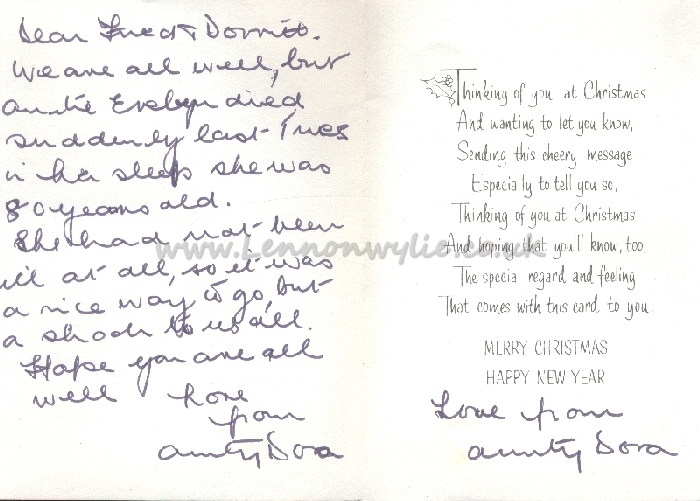 Dear Fred & Dorrie.
We are all well, but
auntie Evelyn died
suddenly last Tues
in her sleep she was
80 years old.
She had not been
ill at all, so it was
a nice way to go, but
a shock to us all.
Hope you are all
well Love
from
aunty Dora
Thinking of you at Christmas
And wanting to let you know,
Sending this cheery message
Especially to tell you so,
Thinking of you at Christmas
And hoping that you'll know, too
The special regard and feeling
That comes with this card to you
MERRY CHRISTMAS
HAPPY NEW YEAR
Love from
aunty Dora
www.Lennonwylie.co.uk